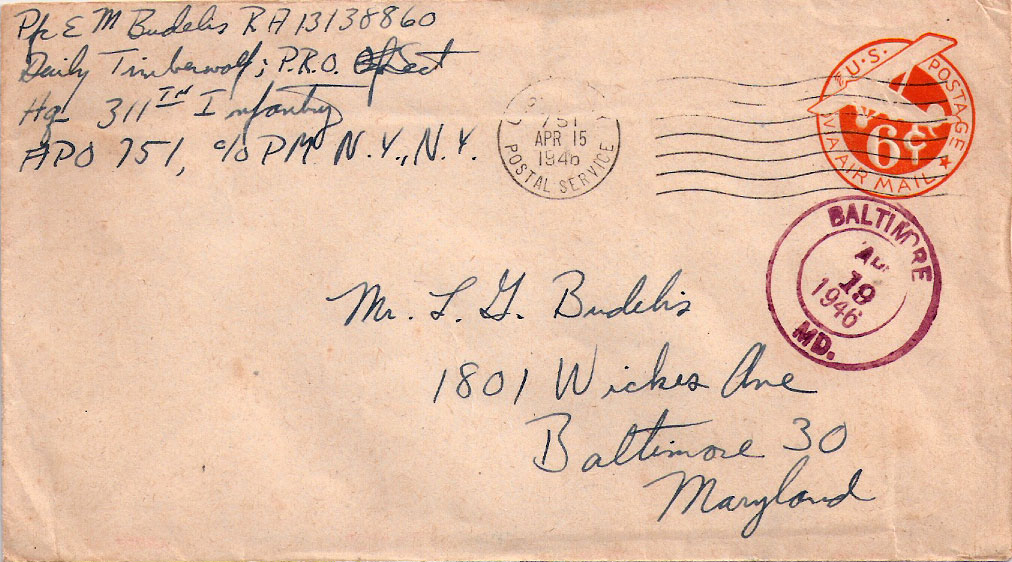 Pfc E M Budelis RA 13138860
Daily Timberwolf; P.R.O. Sect
Hq 311th Infantry
APO 751, c/o P.M. N.Y., N.Y.
751
APR 15
1946
POSTAL SERVICE
U.S. POSTAGE
6¢
VIA AIR MAIL
BALTIMORE
19
1946
MD.
Mr. L. G. Budelis
1801 Wickes Ave
Baltimore 30
Maryland